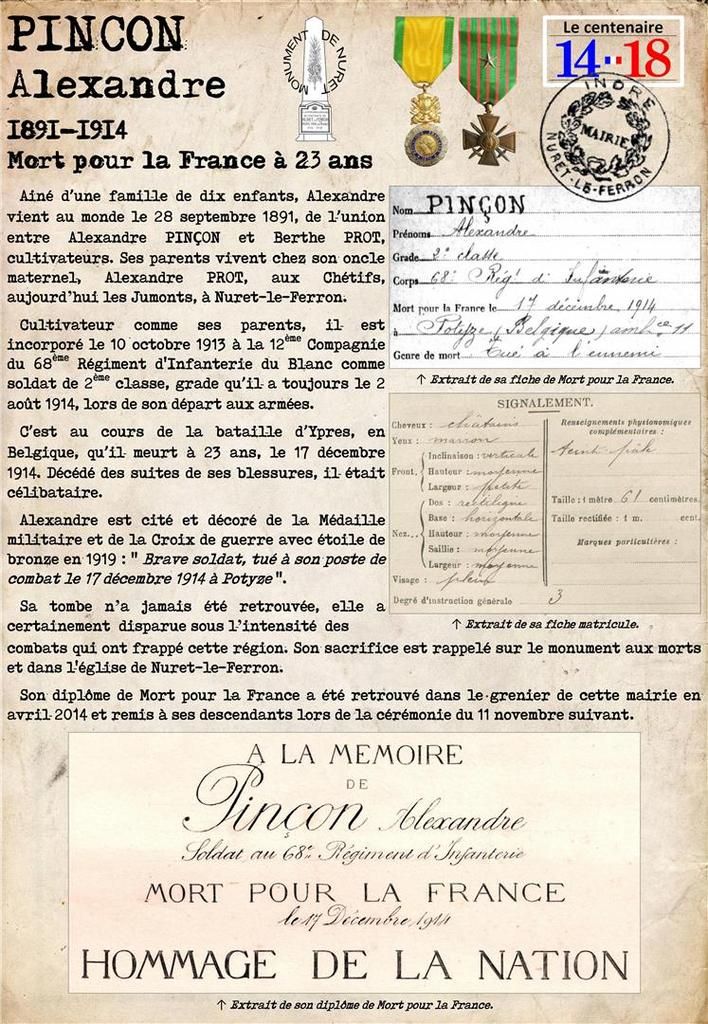 PINCON
Alexandre
1891-1914
Mort pour la France à 23 ans
MONUMENT DE NURET
Le centenaire
14··18
INDRE
MAIRIE
NURET-LE-FERRON
Ainé d'une famille de dix enfants, Alexandre
vient au monde le 28 septembre 1891, de l'union
entre Alexandre PINÇON et Berthe PROT,
cultivateurs. Ses parents vivent chez son oncle
maternel, Alexandre PROT, aux Chétifs,
aujourd'hui les Jumonts, à Nuret-le-Ferron.
Cultivateur comme ses parents, il est
incorporé le 10 octobre 1913 à la 12ème Compagnie
du 68ème Régiment d'Infanterie du Blanc comme
soldat de 2ème classe, grade qu'il a toujours le 2
août 1914, lors de son départ aux armées.
C'est au cours de la bataille d'Ypres, en
Belgique, qu'il meurt à 23 ans, le 17 décembre
1914. Décédé des suites de ses blessures, il était
célibataire.
Alexandre est cité et décoré de la Médaille
militaire et de la Croix de guerre avec étoile de
bronze en 1919 : " Brave soldat, tué à son poste de
combat le 17 décembre 1914 à Potyze ".
Sa tombe n'a jamais été retrouvée, elle a
certainement disparue sous l'intensité des
combats qui ont frappé cette région. Son sacrifice est rappelé sur le monument aux morts
et dans l'église de Nuret-le-Ferron.
Son diplôme de Mort pour la France a été retrouvé dans le grenier de cette mairie en
avril 2014 et remis à ses descendants lors de la cérémonie du 11 novembre suivant.
Nom PINÇON
Prénoms Alexandre
Grade 2e classe
Corps 68e Rég' d'Infanterie
Mort pour la France le 17 décembre 1914
à Potyze (Belgique) ambce 11
Genre de mort Tué à l'ennemi
↑ Extrait de sa fiche de Mort pour la France.
SIGNALEMENT.
Cheveux : châtains
Yeux : marron
Front. Inclinaison : verticale
Hauteur : moyenne
Largeur : petite
Nez... Dos : rectiligne
Base : horizontale
Hauteur : moyenne
Saillie : moyenne
Largeur : moyenne
Visage : plein
Degré d'instruction générale 3
Renseignements physionomiques
complémentaires :
teint pâle
Taille : 1 mètre 61 centimètres.
Taille rectifiée : 1 m. cent.
Marques particulières :
↑ Extrait de sa fiche matricule.
A LA MEMOIRE
DE
Pinçon Alexandre
Soldat au 68e Régiment d'Infanterie
MORT POUR LA FRANCE
le 17 Décembre 1914
HOMMAGE DE LA NATION
↑ Extrait de son diplôme de Mort pour la France.